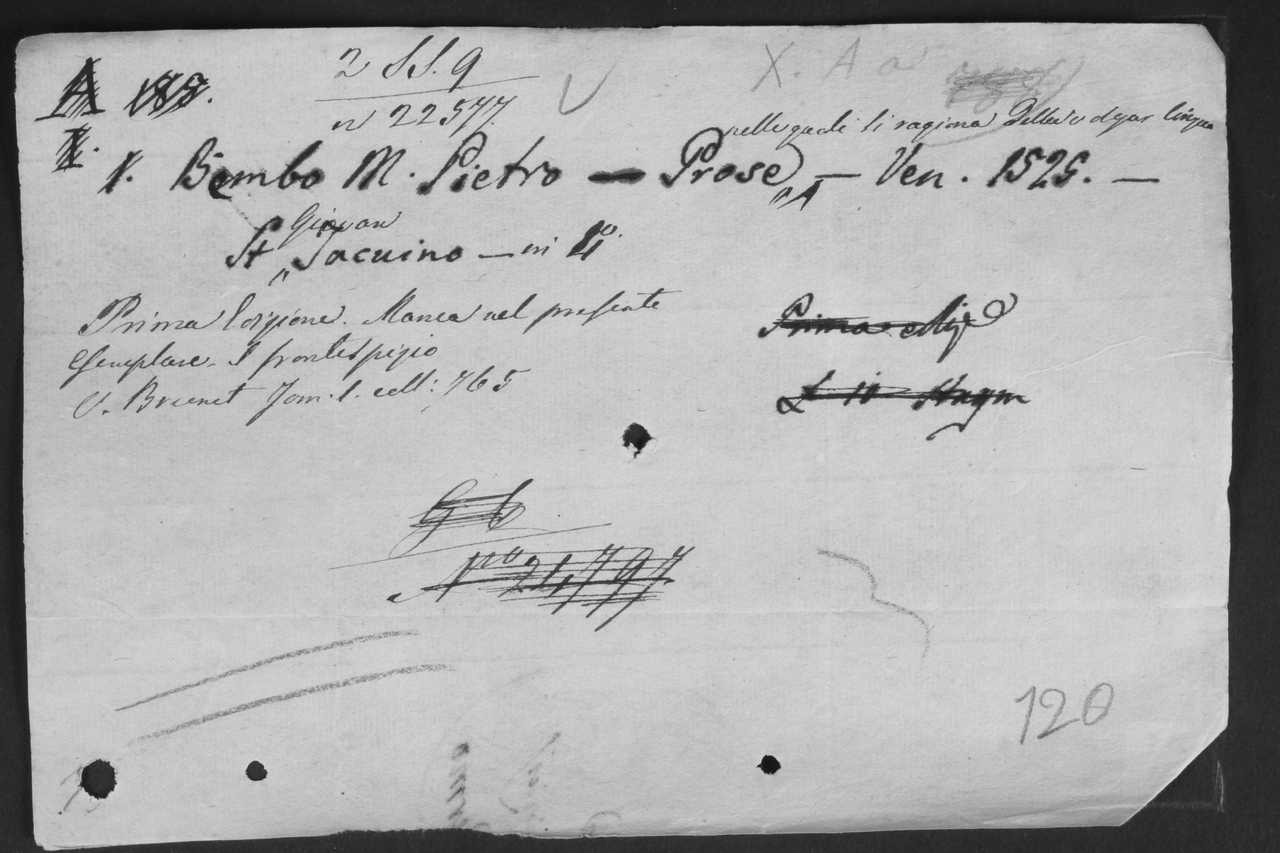 A 188.
2 SS. 9
n 22577.
X. A a
X.
nelle quali si ragiona della volgar lingua
1. Bembo M. Pietro — Prose — Ven. 1525. —
Giovan
St Tacuino — in 4o.
Prima Edizione. Manca nel presente
esemplare il frontespizio
V. Brunet Tom. 1. coll: 765
Prima ediz
No 21,797
120